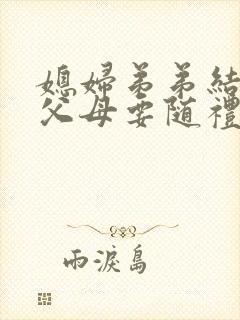 媳婦弟弟結
父母要随禮
雨淚島